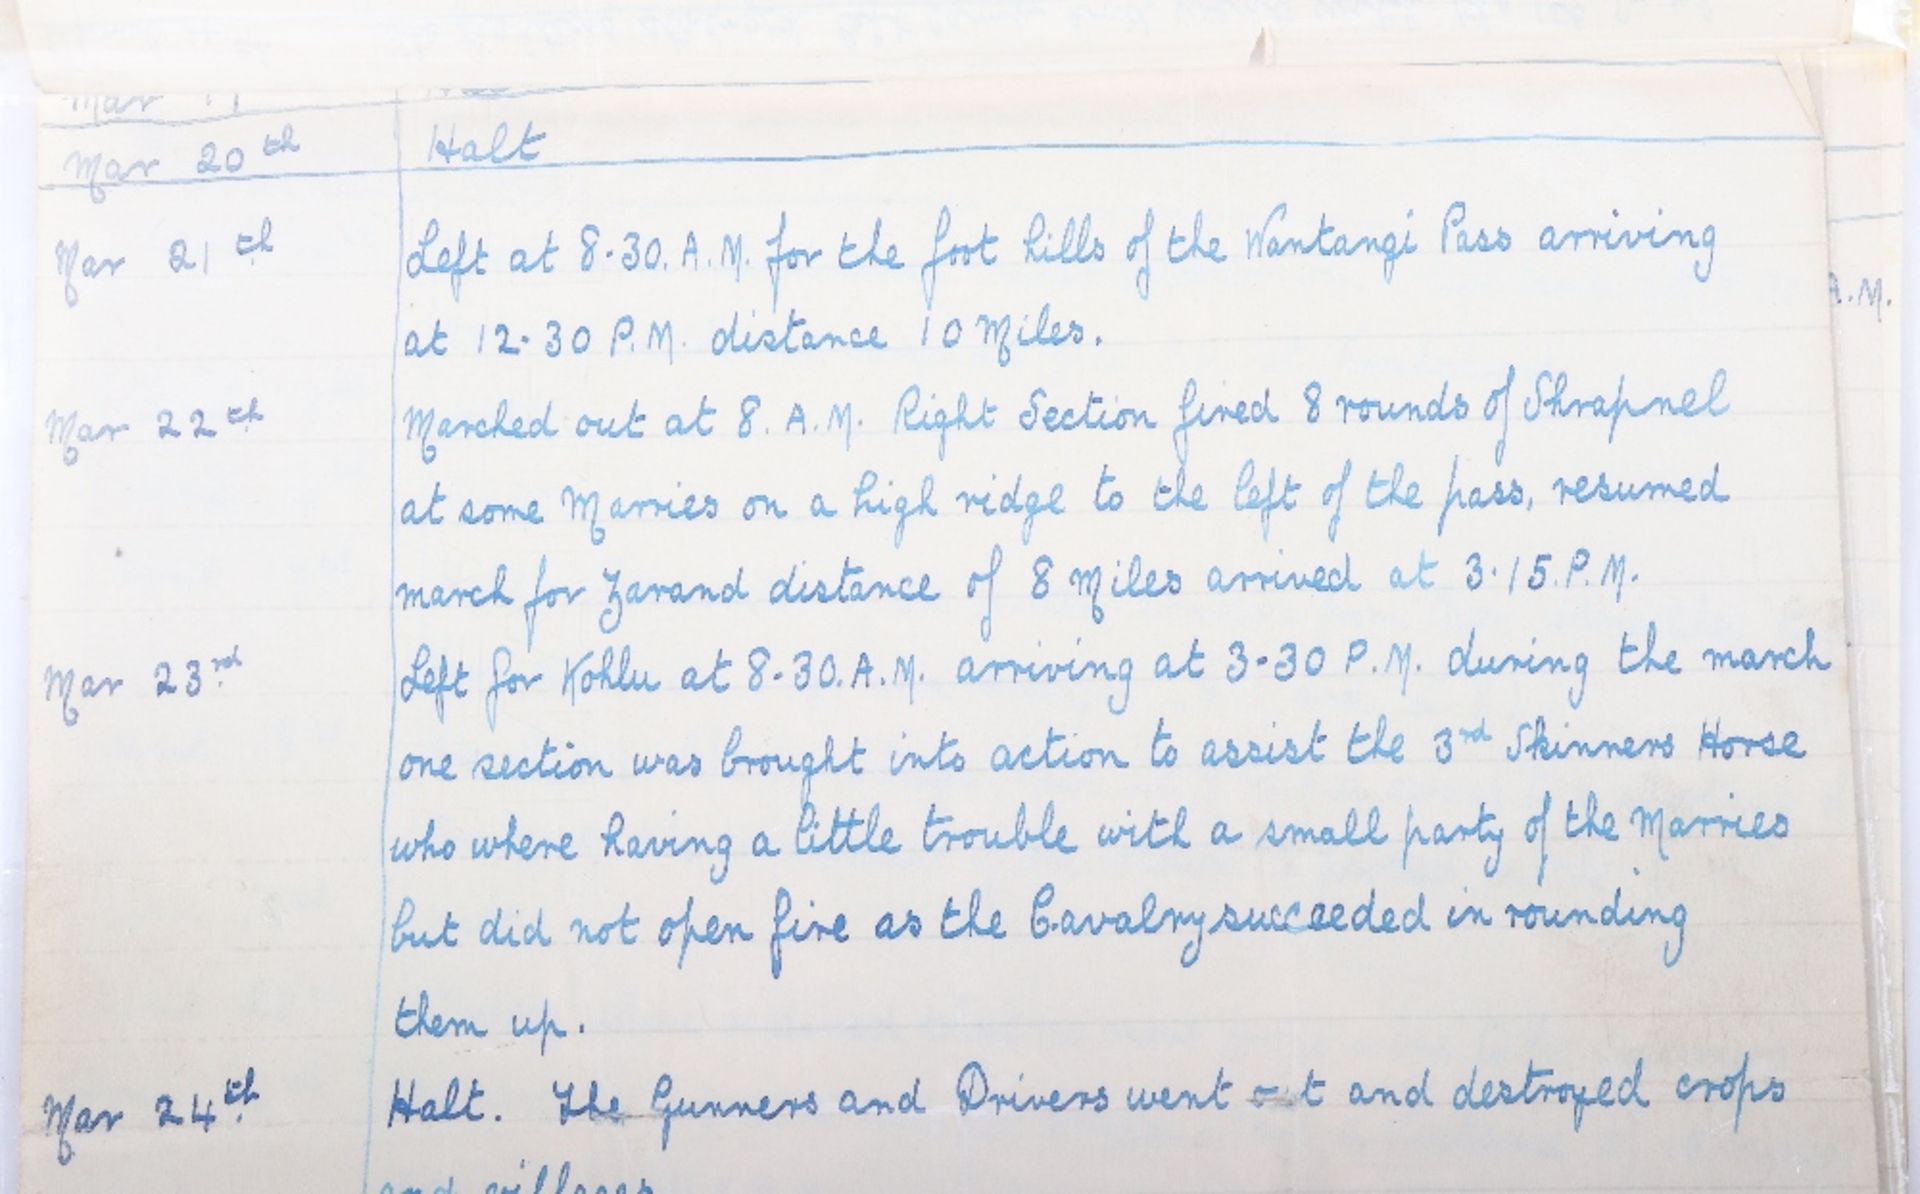 Mar 20th Halt
Mar 21th Left at 8-30. A.M. for the foot hills of the Wantangi Pass arriving
at 12-30 P.M. distance 10 Miles.
A.M.
Mar 22th Marched out at 8. A.M. Right Section fired 8 rounds of Shrapnel
at some Marries on a high ridge to the left of the pass, resumed
march for Zarand distance of 8 Miles arrived at 3.15. P.M.
Mar 23rd Left for Kohlu at 8-30. A.M. arriving at 3-30 P.M. during the march
one section was brought into action to assist the 3rd Skinners Horse
who where having a little trouble with a small party of the Marries
but did not open fire as the Cavalry succeeded in rounding
them up.
Mar 24th Halt. The Gunners and Drivers went out and destroyed crops
and villages